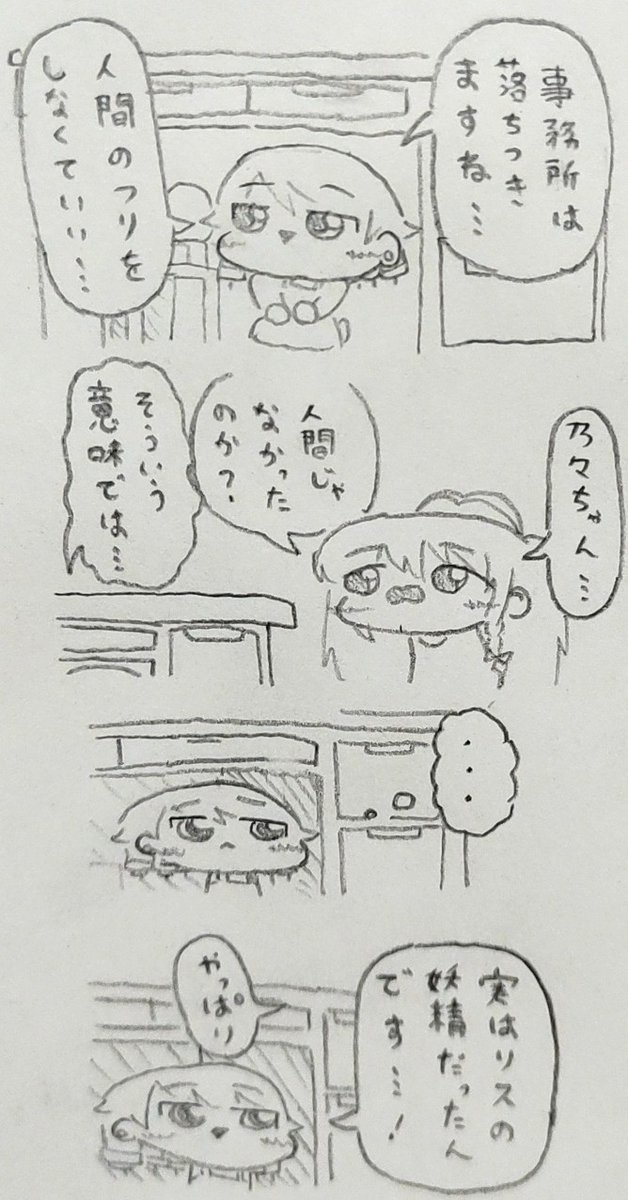 事務所は
落ちつき
ますね…
人間のフリを
しなくていい…
乃々ちゃん…
人間じゃ
なかった
のか?
そういう
意味では…
…
実はリスの
妖精だったん
です…!
やっぱり